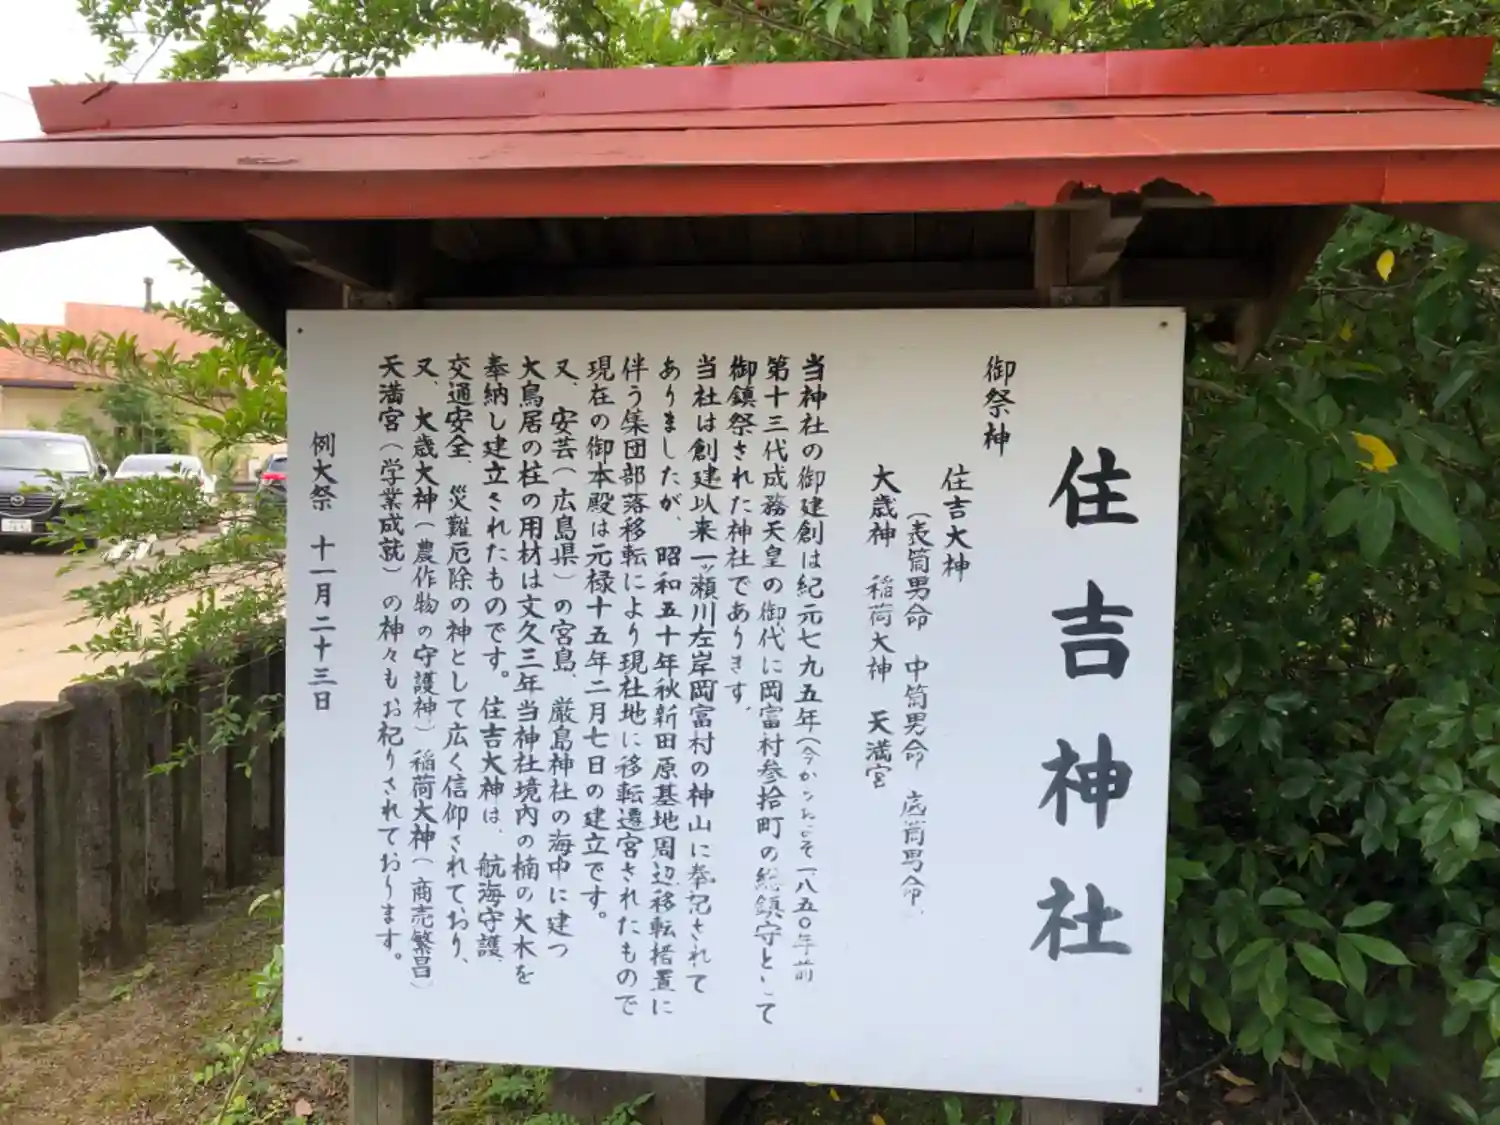 住吉神社
御祭神
住吉大神
（表筒男命　中筒男命　底筒男命）
大歳神　稲荷大神　天満宮
当神社の御建創は紀元七九五年（今からおよそ一八五〇年前
第十三代成務天皇の御代に岡富村参拾町の総鎮守として
御鎮祭された神社であります。
当社は創建以来一ッ瀬川左岸岡富村の神山に奉祀されて
ありましたが、昭和五十年秋新田原基地周辺移転措置に
伴う集団部落移転により現社地に移転遷宮されたもので
現在の御本殿は元禄十五年二月七日の建立です。
又、安芸（広島県）の宮島、厳島神社の海中に建つ
大鳥居の柱の用材は文久三年当神社境内の楠の大木を
奉納し建立されたものです。住吉大神は、航海守護、
交通安全、災難厄除の神として広く信仰されており、
又、大歳大神（農作物の守護神）稲荷大神（商売繁昌）
天満宮（学業成就）の神々もお祀りされております。
例大祭　十一月二十三日